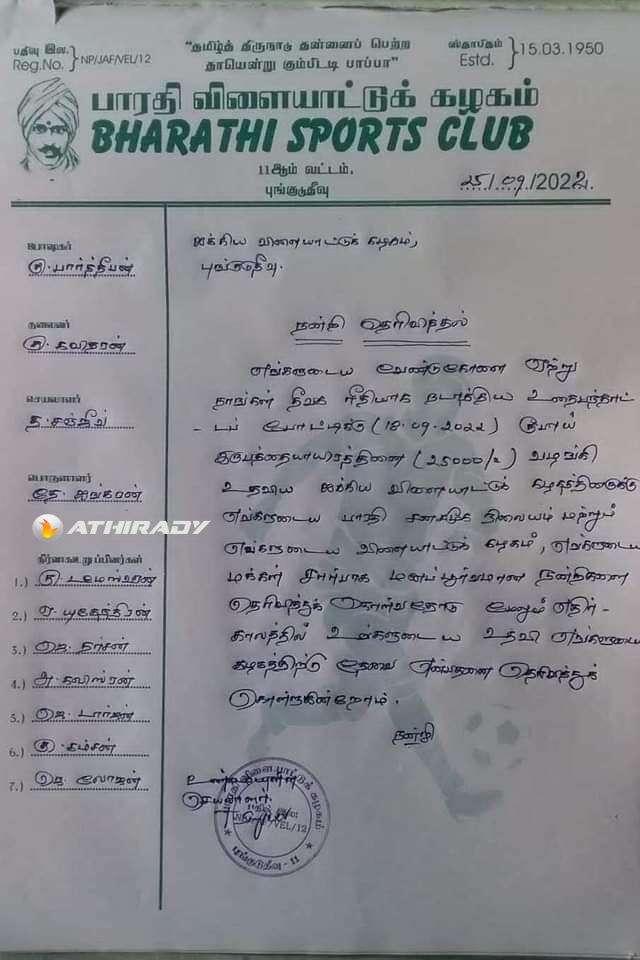 பதிவு இல.
Reg.No. } NP/JAF/VEL/12
"தமிழ்த் திருநாடு தன்னைப் பெற்ற
தாயென்று கும்பிடடி பாப்பா"
ஸ்தாபிதம்
Estd. } 15.03.1950
பாரதி விளையாட்டுக் கழகம்
BHARATHI SPORTS CLUB
11ஆம் வட்டம்,
புங்குடுதீவு
25/09/2022.
போஷகர்
கு. பார்த்தீபன்
தலைவர்
கு. கவிதரன்
செயலாளர்
த. சஞ்சீவ்
பொருளாளர்
நிர்வாகஉறுப்பினர்கள்
1.)
2.)
3.) தர்சன்
4.)
5.)
6.) கு. கம்சன்
7.)
ஐக்கிய விளையாட்டுக் கழகம்,
புங்குடுதீவு.
நன்றி தெரிவித்தல்
எங்களுடைய வேண்டுகோளை ஏற்று
நாங்கள் தீவக ரீதியாக நடாத்திய உதைபந்தாட்
- டப் போட்டிக்கு (18.09.2022) ரூபாய்
இருபத்தையாயிரத்தினை (25000/=) வழங்கி
உதவிய ஐக்கிய விளையாட்டுக் கழகத்தினருக்கு
எங்களுடைய பாரதி சனசமூக நிலையம் மற்றும்
எங்களுடைய விளையாட்டுக் கழகம், எங்களுடைய
மக்கள் சார்பாக மனப்பூர்வமான நன்றிகளை
தெரிவித்துக் கொள்வதோடு மேலும் எதிர் -
காலத்தில் உங்களுடைய உதவி எங்களுடைய
கழகத்திற்கு தேவை என்பதனை தெரிவித்துக்
கொள்கின்றோம்.
நன்றி
உண்மையுள்ள
செயலாளர்.
விளையாட்டுக் கழகம்
VEL/12
புங்குடுதீவு - 11
ATHIRADY